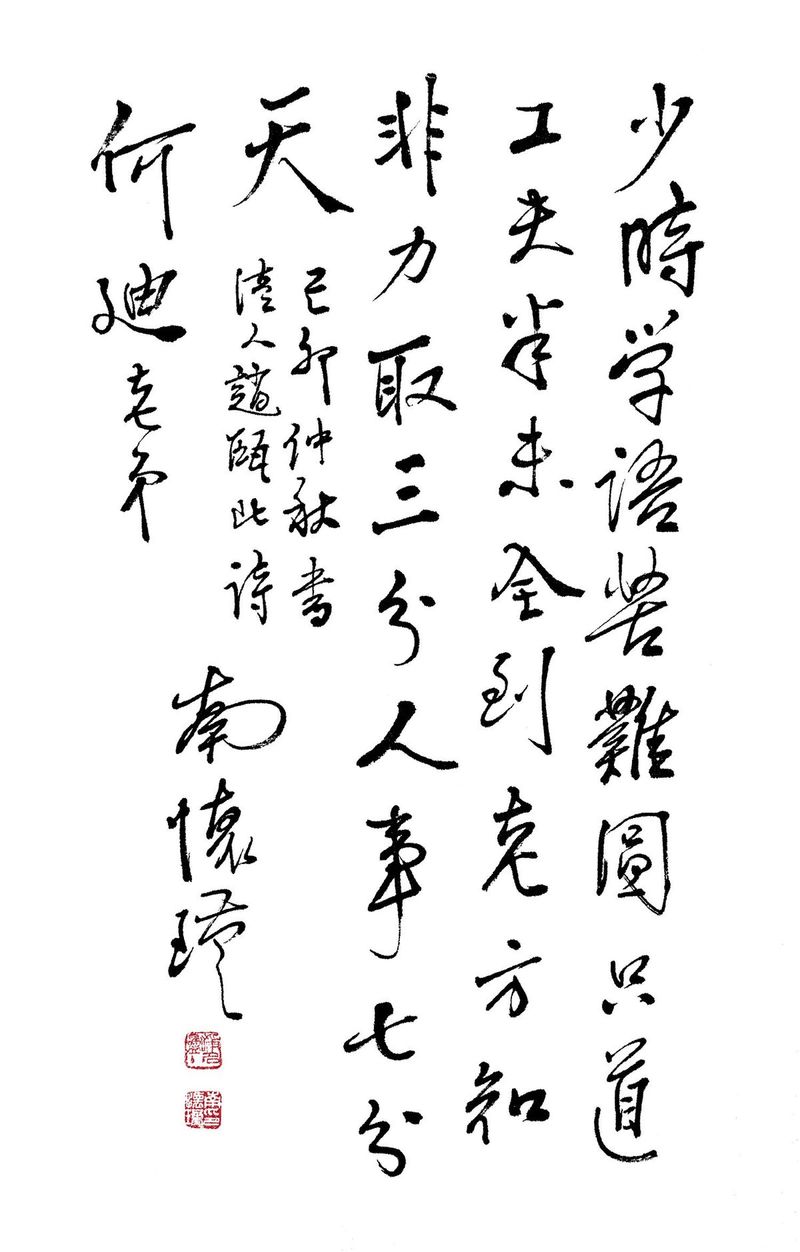 少時学語苦難圓只道
工夫半未全到老方知
非力取三分人事七分
天
己卯仲秋書
清人趙甌北詩
南懷瑾
何迪老弟